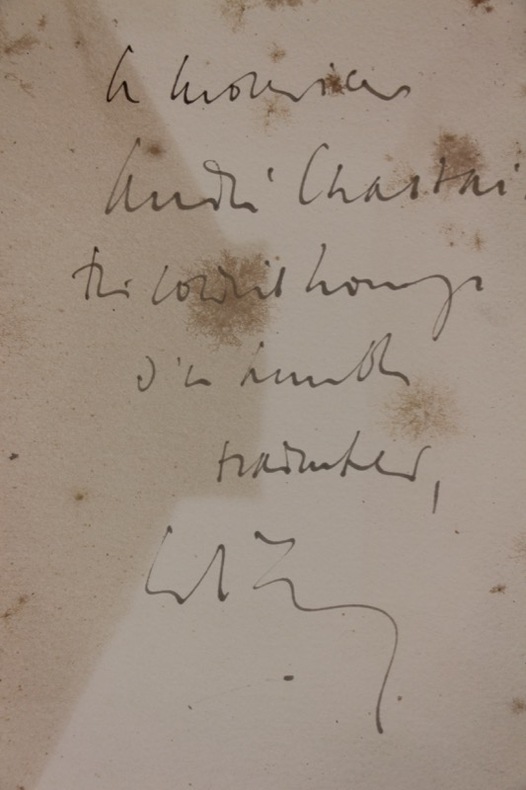 à Monsieur
André Chastai
très cordial hommage
d'un humble
traducteur,